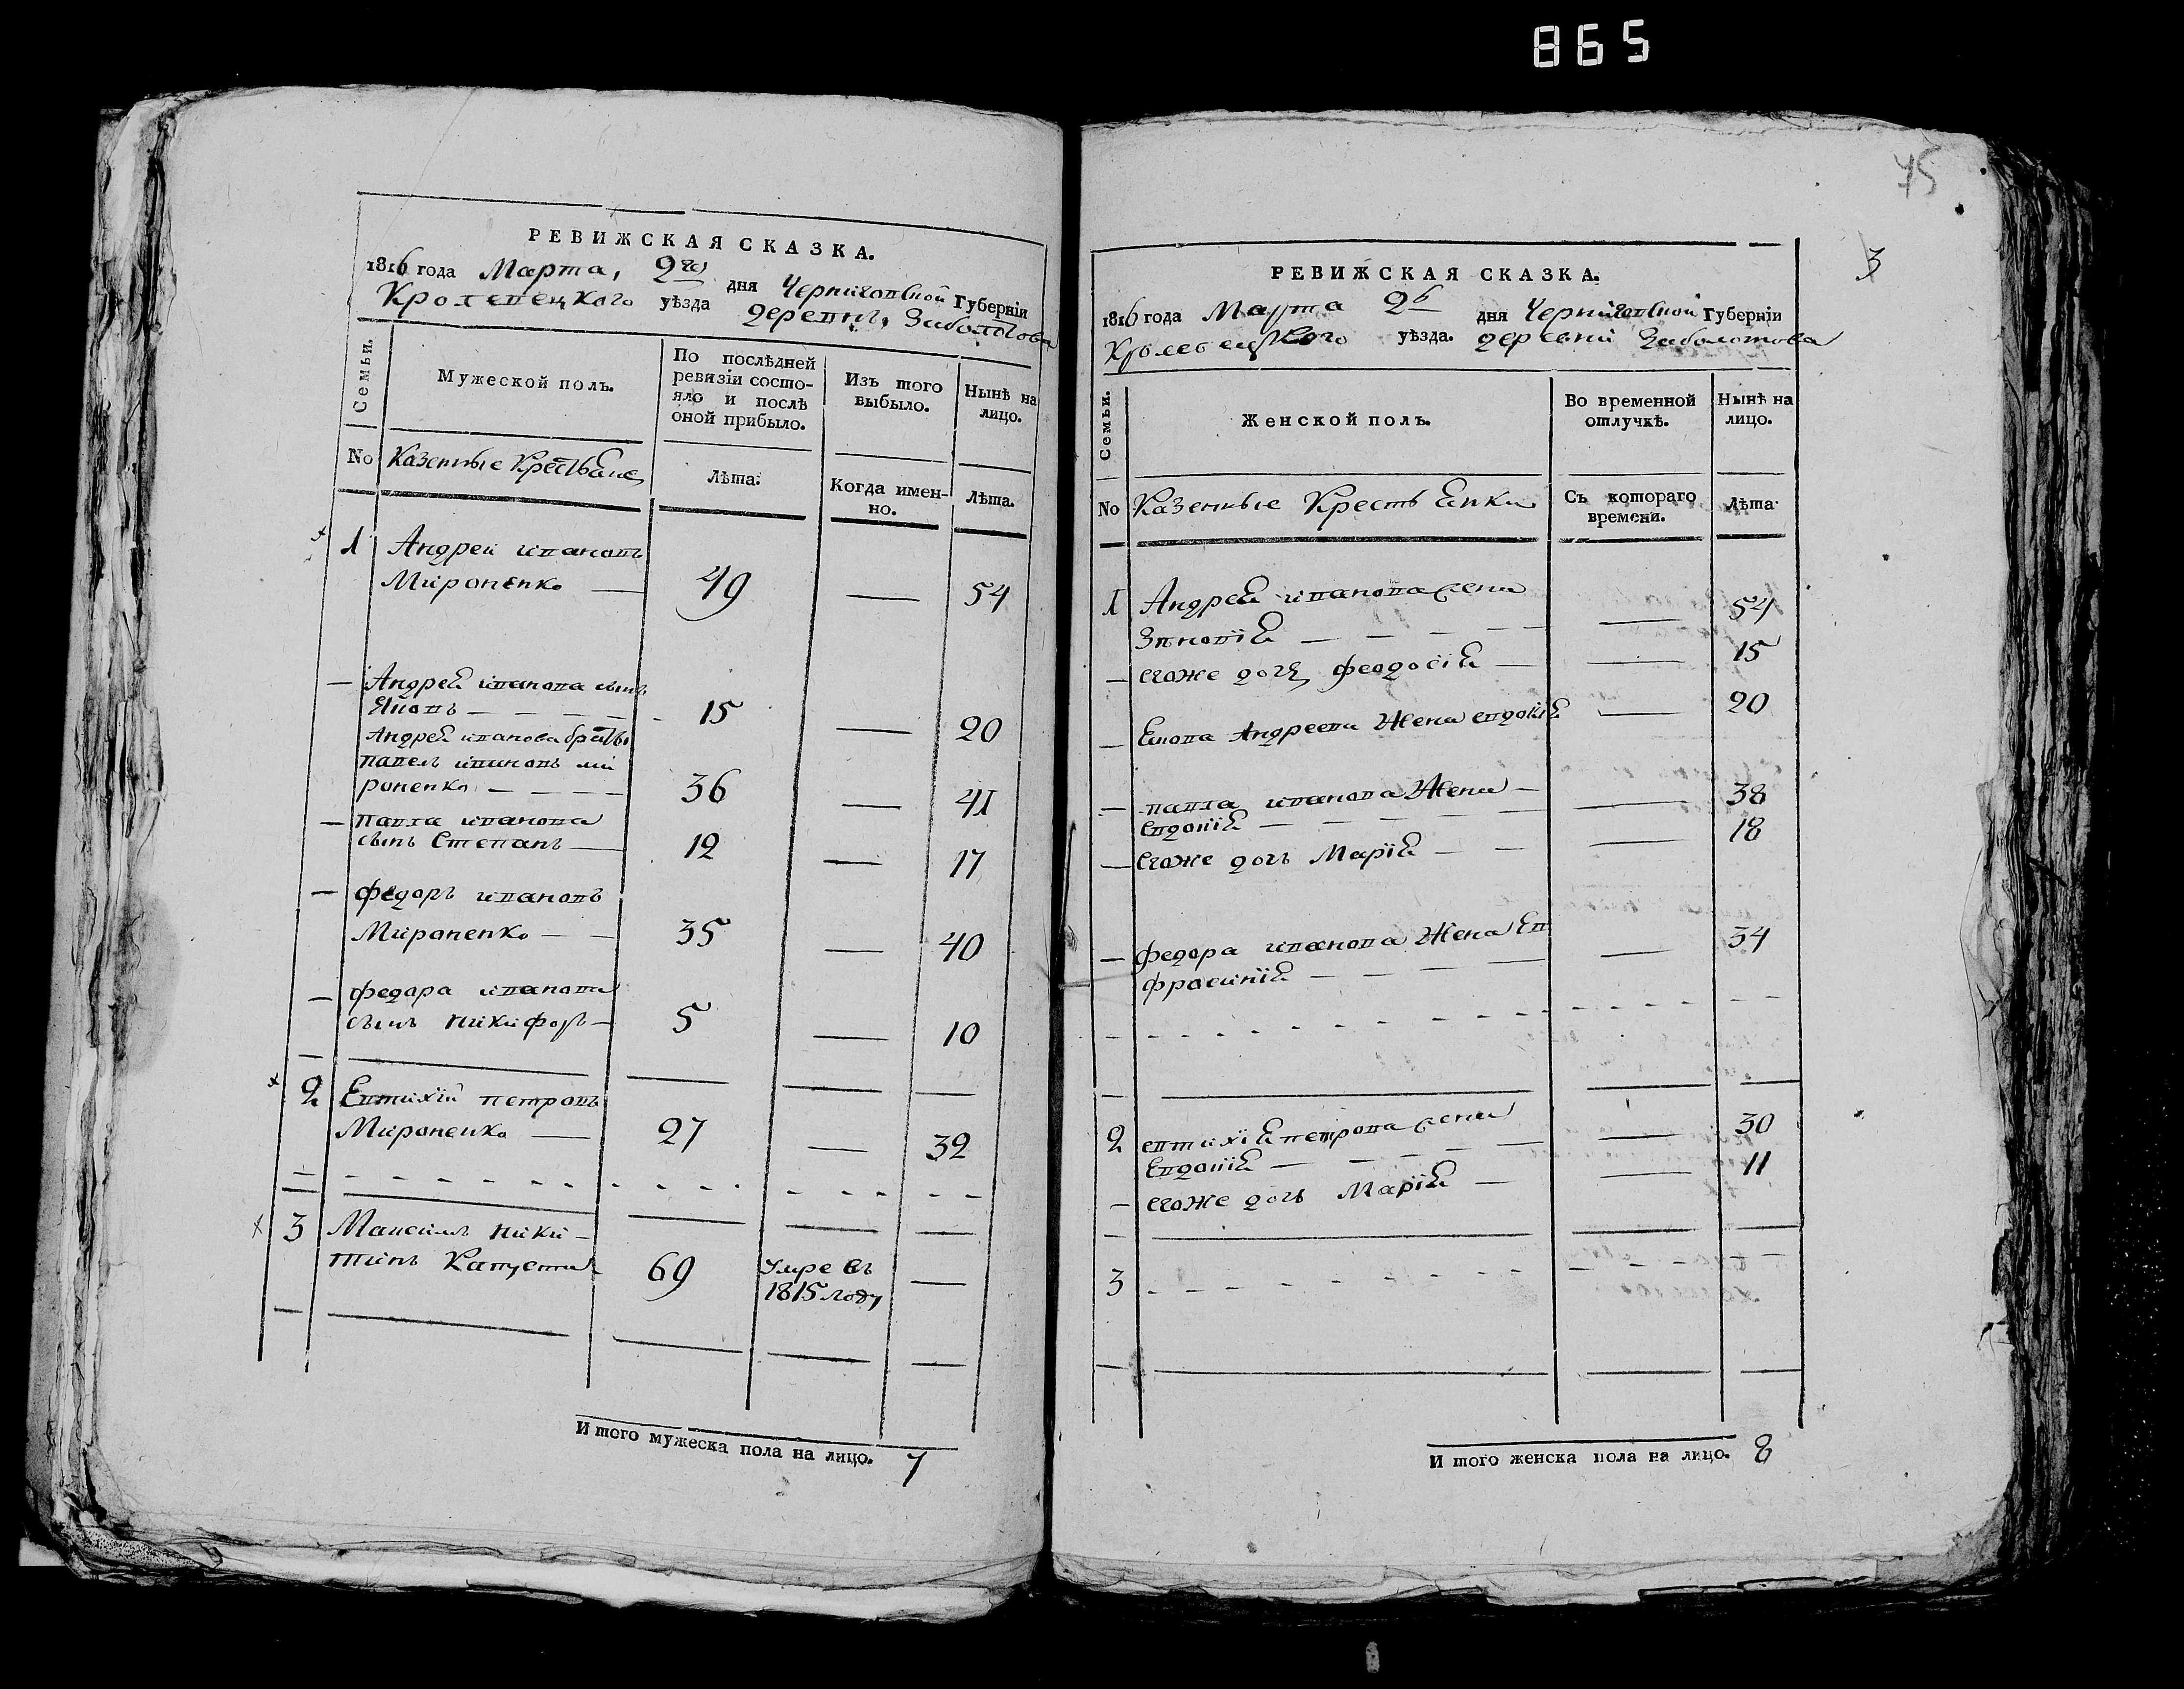 865
РЕВИЖСКАЯ СКАЗКА.
1816 года Марта, 2го дня Черниговской Губерніи
Кролевецкого уѣзда деревнѣ Заболотова
Семьи.
Мужеской полъ.
По послѣдней
ревязіи состо-
яло и послѣ
оной прибыло.
Изъ того
выбыло.
Нынѣ на
лицо.
No Казенные Крестьяне
Лѣта.
Когда имен-
но.
Лѣта.
1 Андреи ивановъ
Мироненко — 49 — 54
— Андрея иванова сынъ
Яковъ — — — — 15 — 20
Андрея иванова братъ
павелъ ивановъ ми
роненко — — — — 36 — 41
— павла иванова
сынъ Степанъ — 12 — 17
— федоръ ивановъ
Мироненко — — 35 — 40
— федора иванова
сынъ никифоръ — 5 — 10
2 Евтихій петровъ
Мироненко — 27 — 32
3 Максимъ ники-
тинъ Капуста 69 умре въ —
1815 году
И того мужеска пола на лицо. 7
75
3
РЕВИЖСКАЯ СКАЗКА.
1816 года Марта 2го дня Черниговской Губерніи
Кролевецкого уѣзда. деревни Заболотова
Семьи.
Женской полъ.
Во временной
отлучкѣ.
Нынѣ на
лицо.
No Казенные Крестьянки
Съ котораго
времени.
Лѣта
1 Андрея иванова жена
Зѣновія — — — — — 54
— егоже дочь феодосія — — 15
— Якова Андреева Жена евдокія — 20
— павла иванова Жена —
Евдокія — — — — — 38
— Егоже дочь Марія — — — 18
— федора иванова Жена Ев
фросинія — — — — 34
2 евтихія петрова жена
Евдокія — — — — — 30
— егоже дочь Марія — — 11
3
И того женска пола на лицо. 8